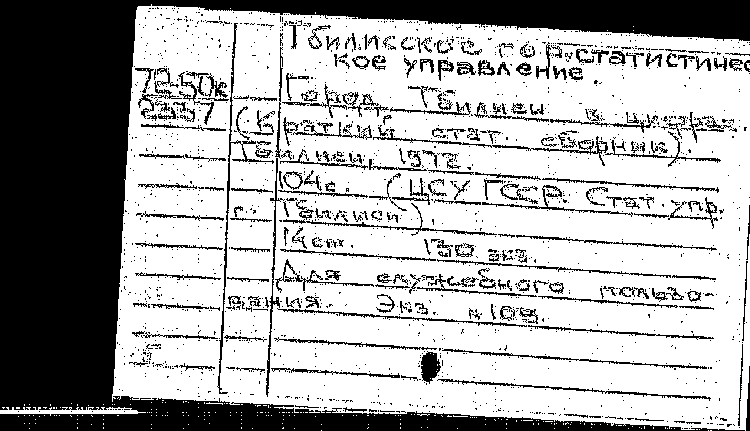 Тбилисское гор. статистичес
кое управление.
72-50к
2337
Город Тбилиси в цифрах.
(Краткий стат. сборник).
Тбилиси, 1972.
104с. (ЦСУ ГССР. Стат. упр.
г. Тбилиси).
14см. 130 экз.
Для служебного пользо-
вания. Экз. №109.